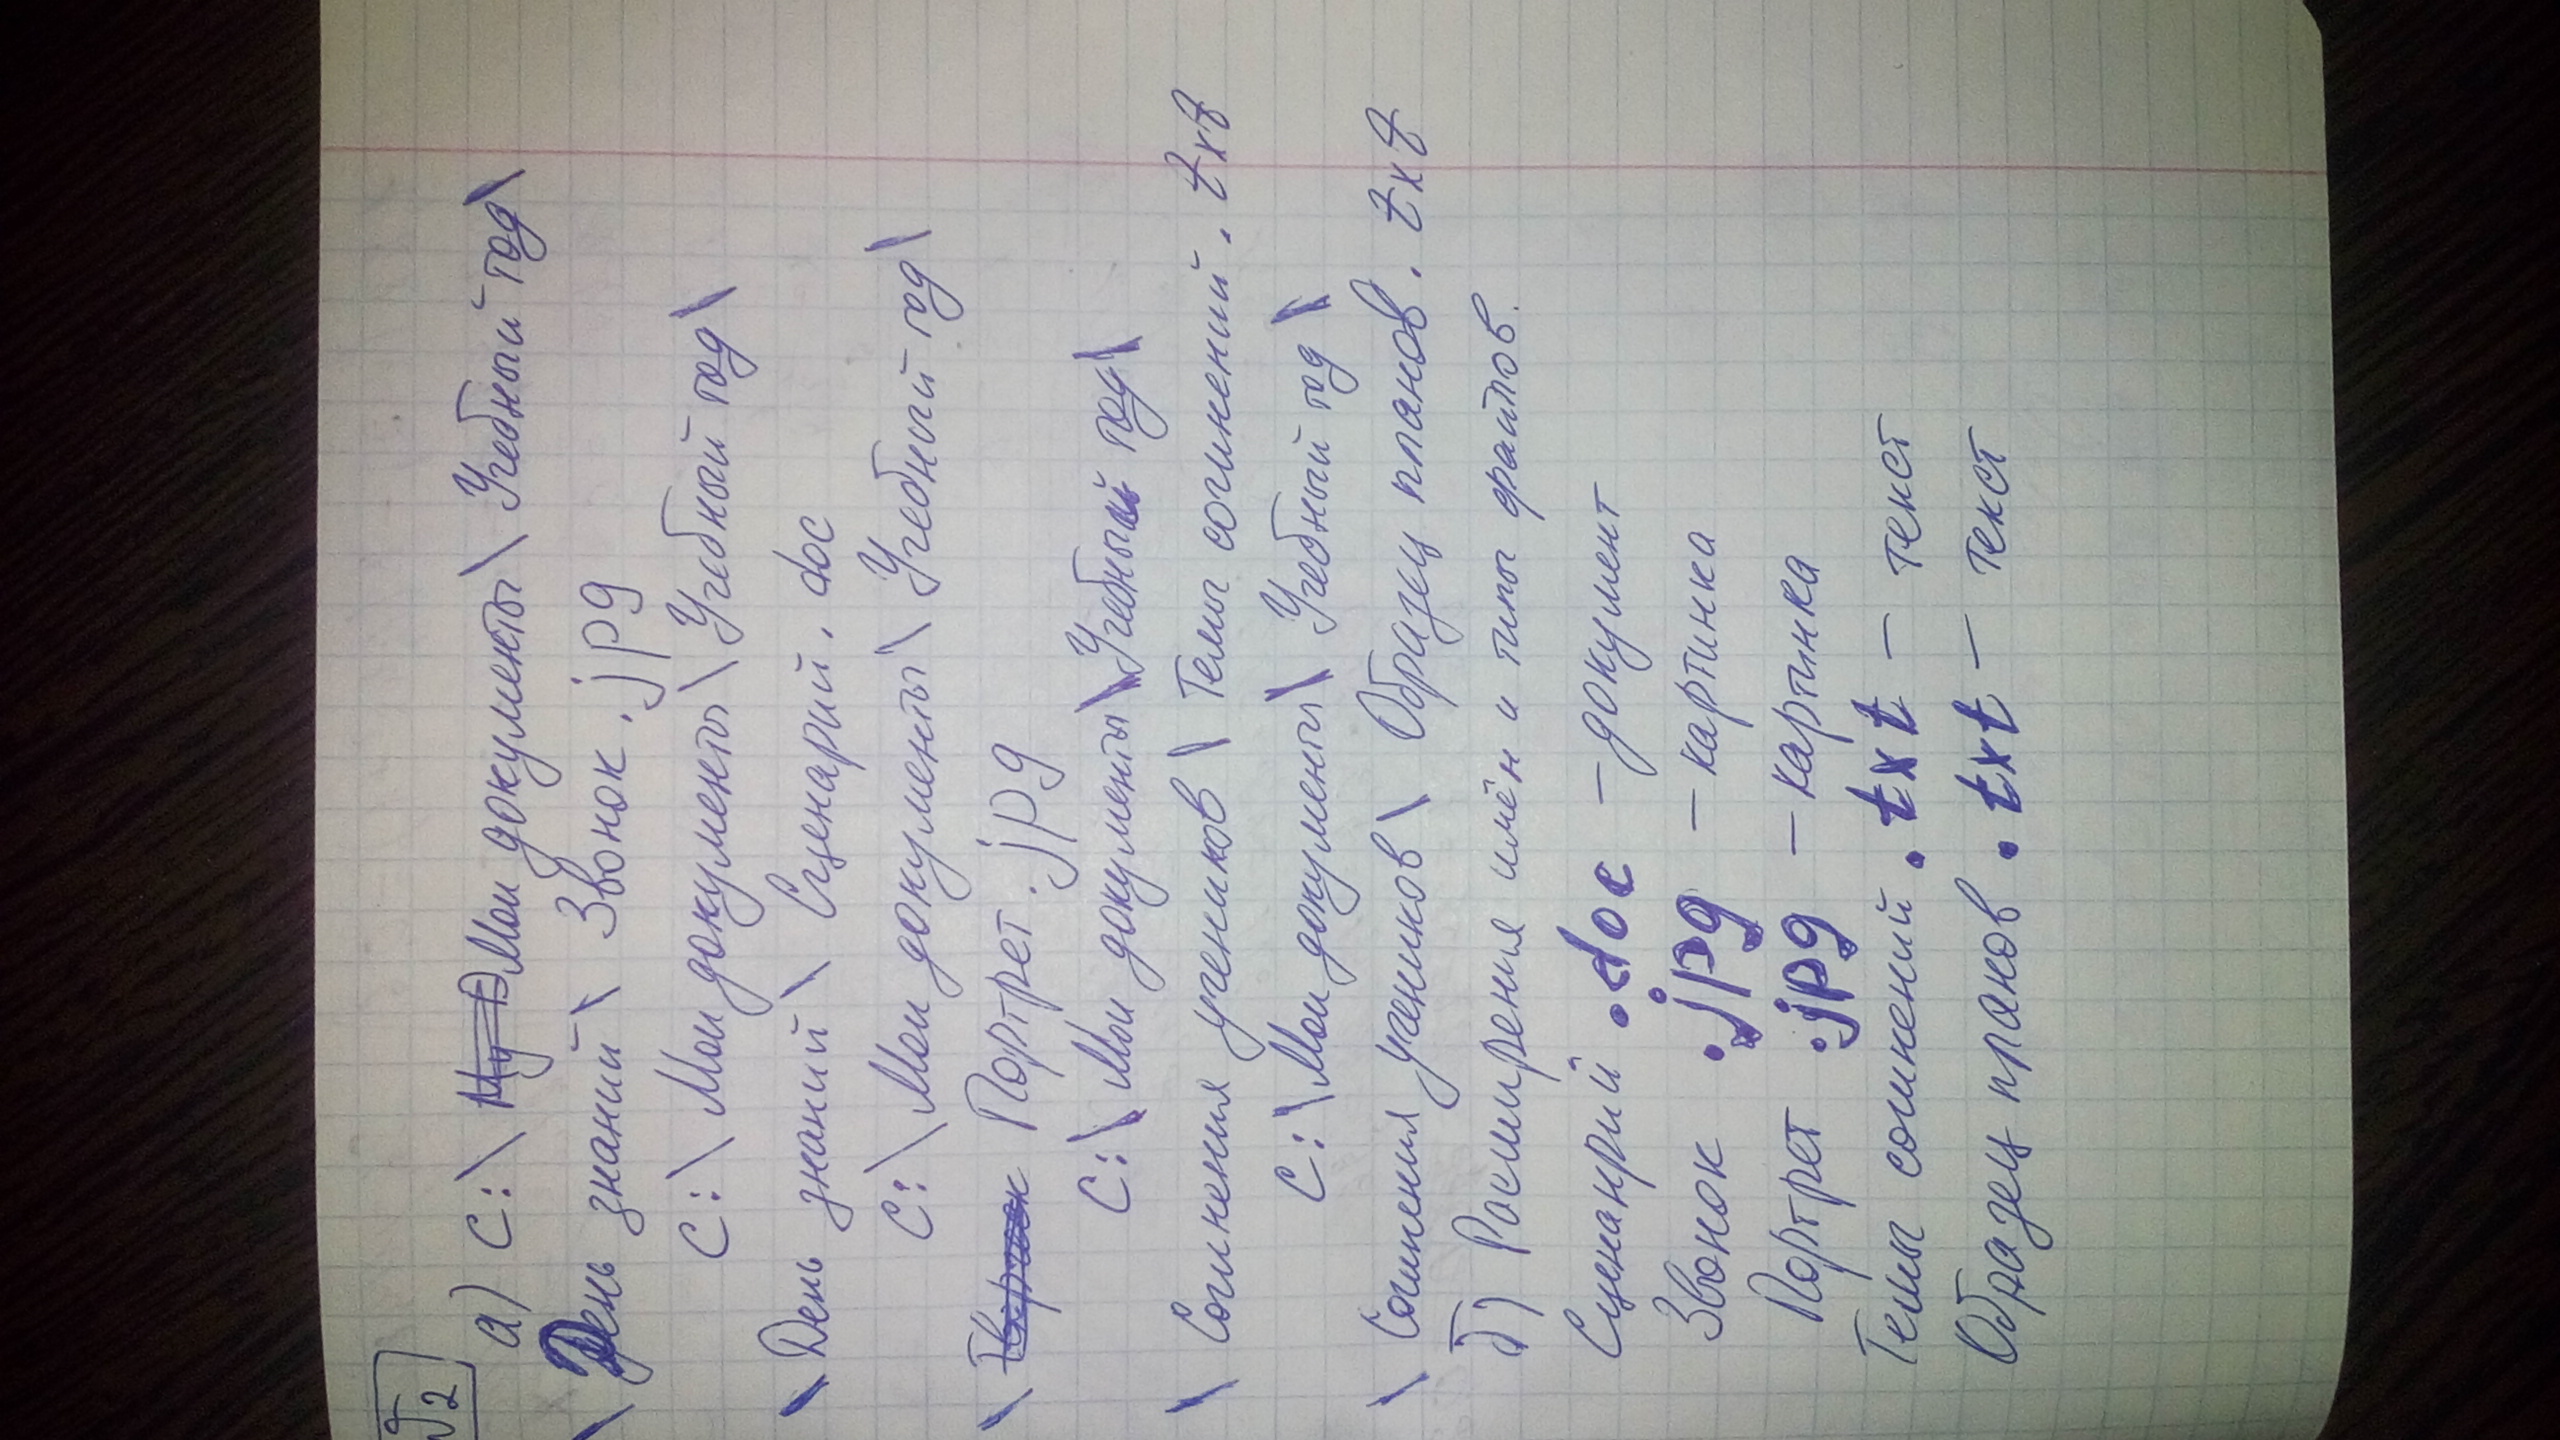 №2
а) С:\ Мои документы\ Учебный год\
\День знаний\ Звонок.jpg
С:\ Мои документы\ Учебный год\
\День знаний\ Сценарий.doc
С:\ Мои документы\ Учебный год\
\ Портрет.jpg
С:\ Мои документы\ Учебный год\
\ Сочинения учеников\ Темы сочинений.txt
С:\ Мои документы\ Учебный год\
\ Сочинения учеников\ Образец планов.txt
б) Расширения имён и типы файлов.
Сценарий .doc – документ
Звонок .jpg – картинка
Портрет .jpg – картинка
Темы сочинений .txt – текст
Образец планов .txt – текст